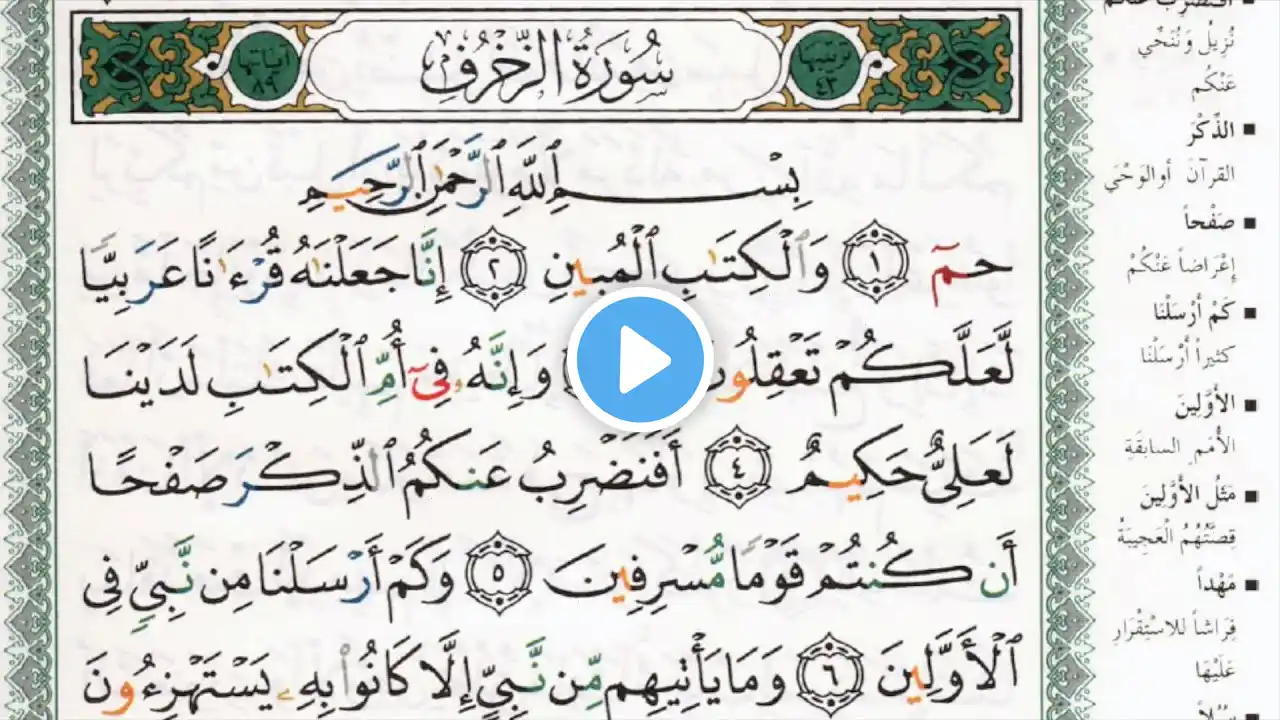 سُورَةُ الزُّخْرُفِ
ترتيبها ٤٣
آياتها ٨٩
بِسْمِ ٱللَّهِ ٱلرَّحْمَٰنِ ٱلرَّحِيمِ
حمٓ ١ وَٱلْكِتَٰبِ ٱلْمُبِينِ ٢ إِنَّا جَعَلْنَٰهُ قُرْءَٰنًا عَرَبِيًّا
لَّعَلَّكُمْ تَعْقِلُو وَإِنَّهُۥ فِىٓ أُمِّ ٱلْكِتَٰبِ لَدَيْنَا
لَعَلِىٌّ حَكِيمٌ ٤ أَفَنَضْرِبُ عَنكُمُ ٱلذِّكْرَ صَفْحًا
أَن كُنتُمْ قَوْمًا مُّسْرِفِينَ ٥ وَكَمْ أَرْسَلْنَا مِن نَّبِىٍّ فِى
ٱلْأَوَّلِينَ ٦ وَمَا يَأْتِيهِم مِّن نَّبِىٍّ إِلَّا كَانُوا۟ بِهِۦ يَسْتَهْزِءُونَ
نُزِيلُ وَنُنَحِّي
عَنْكُم
■ الذِّكْرَ
القرآنَ أو الوَحْيَ
■ صَفْحاً
إِعْرَاضاً عَنْكُمْ
■ كَمْ أَرْسَلْنَا
كثيراً أَرْسَلْنَا
■ الأَوَّلِينَ
الأُمَمِ السابقةِ
■ مَثَلُ الأَوَّلِينَ
قِصَّتُهُمُ الْعَجِيبَةُ
■ مَهْداً
فِرَاشاً لِلاسْتِقْرَارِ
عَلَيْهَا